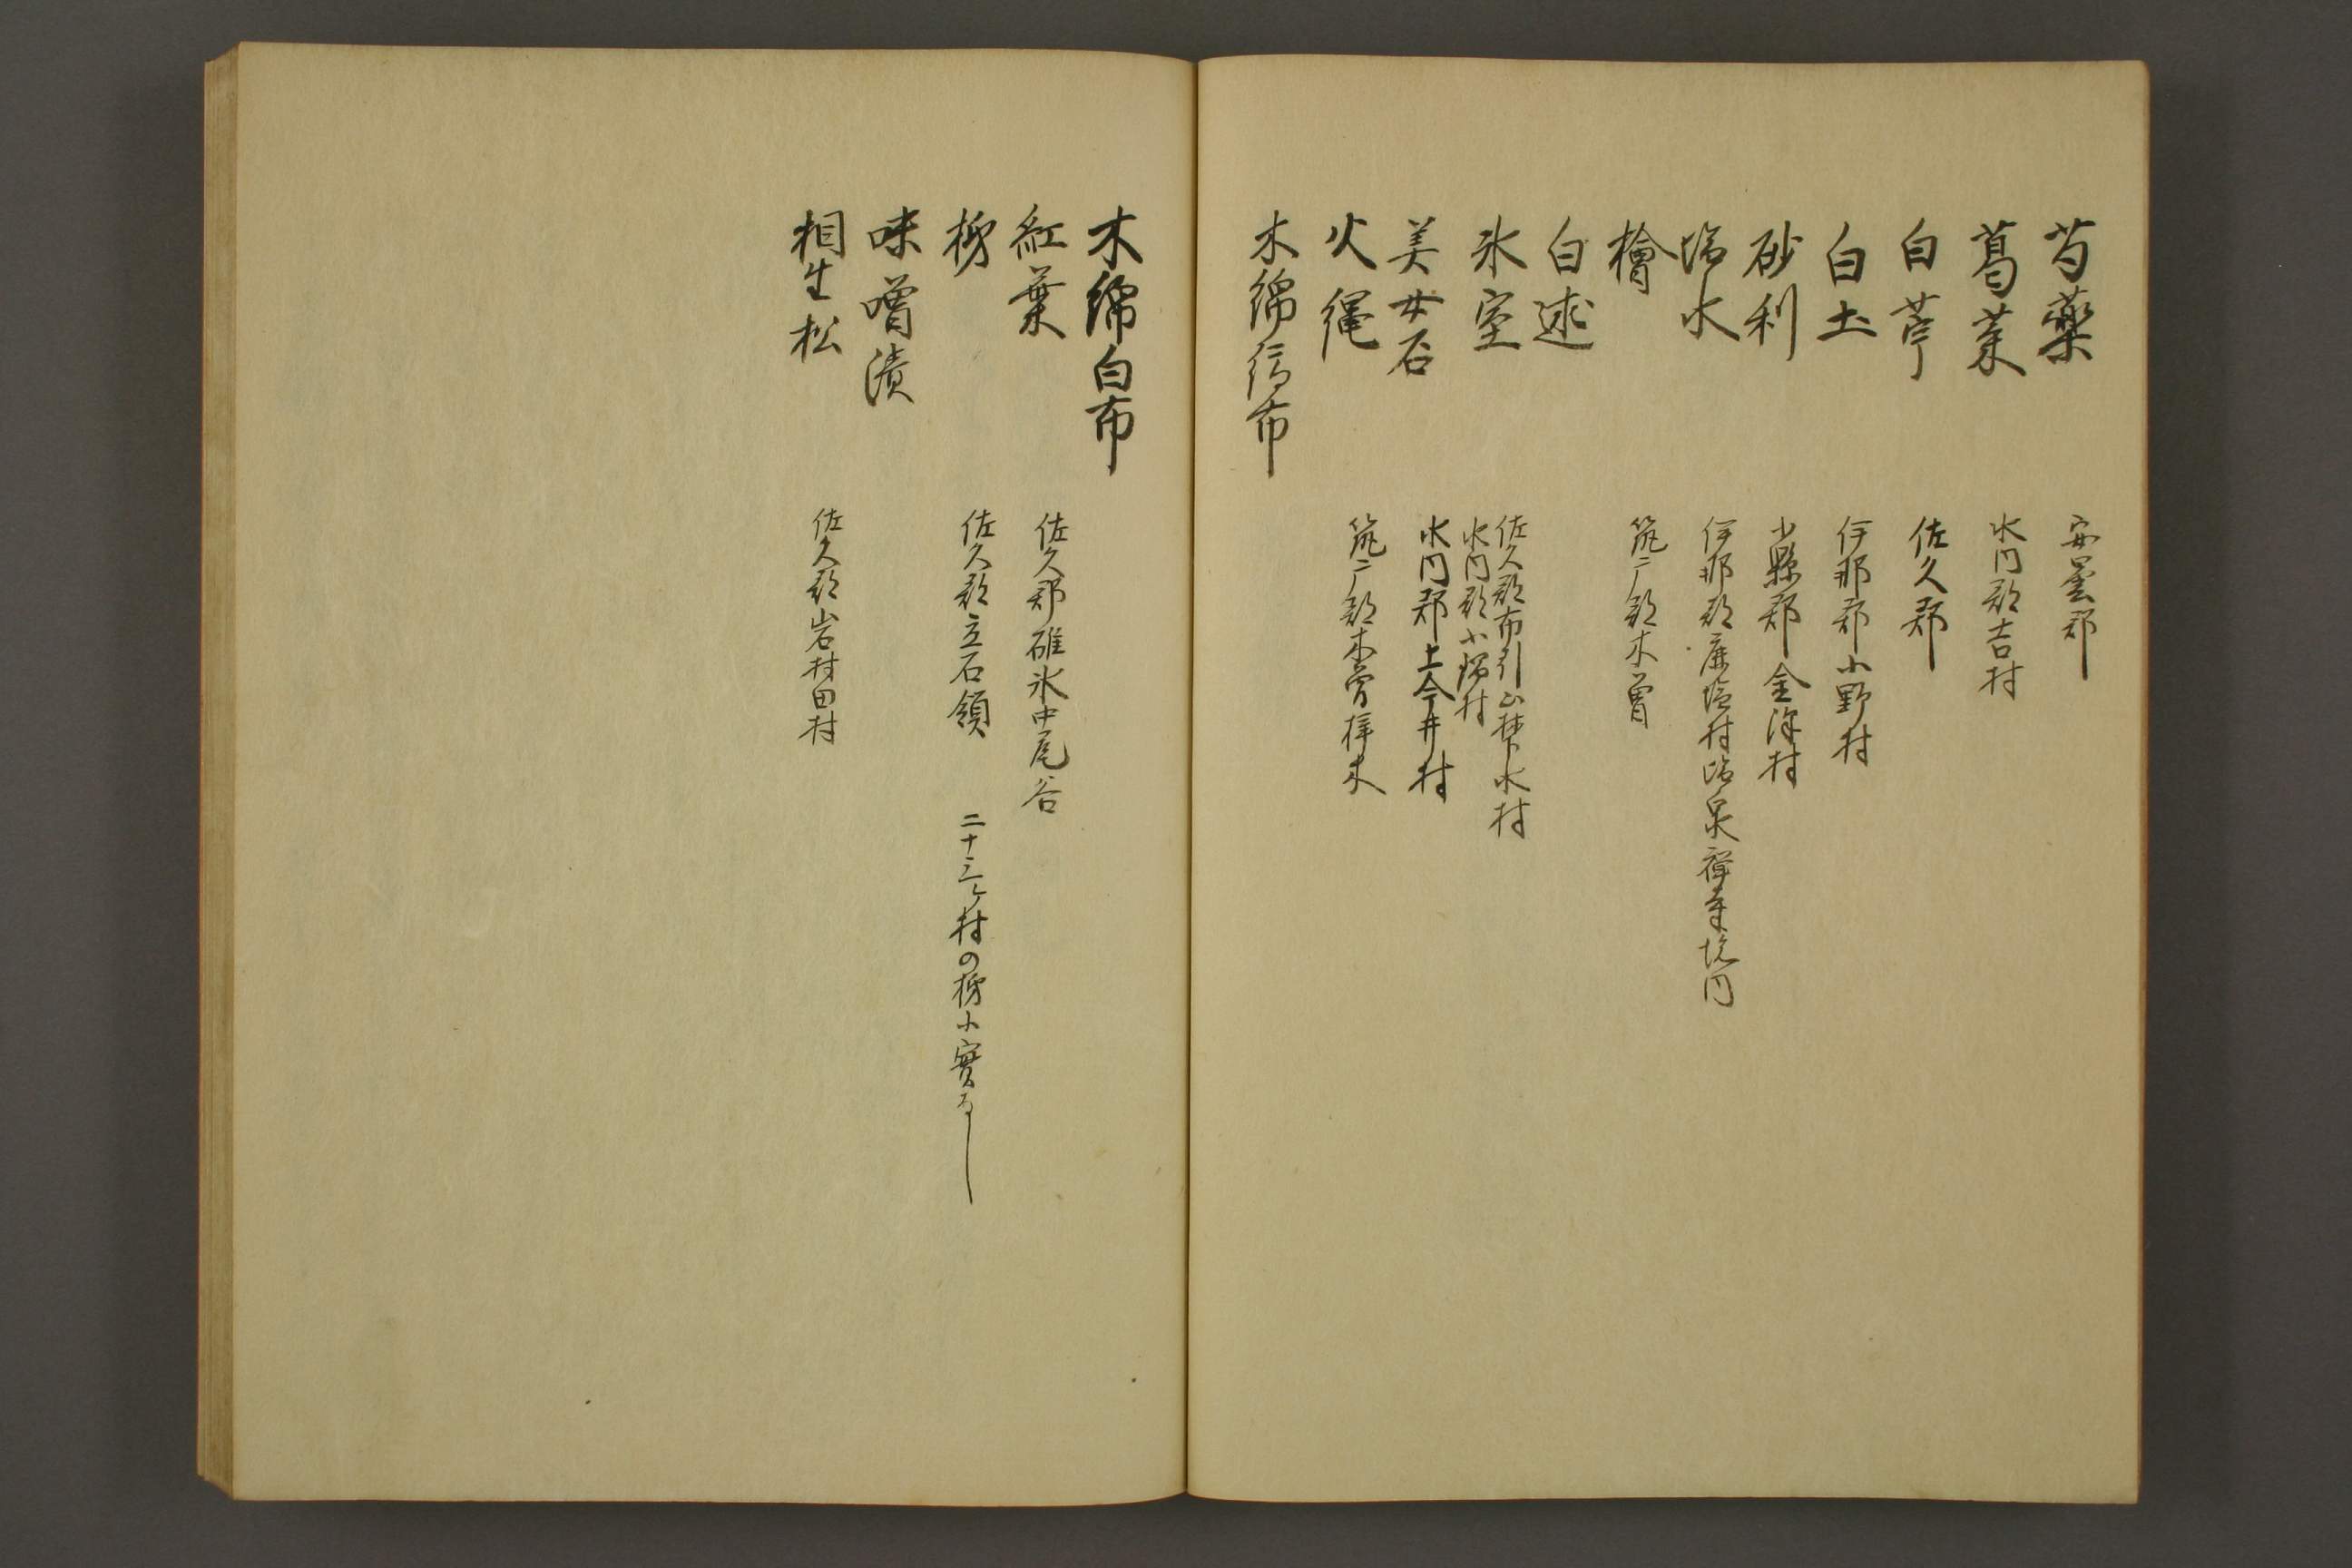 芍薬　安曇郡
葛菜　水内郡吉村
白苧　佐久郡
白土　伊那郡小野村
砂利　小縣郡金深村
塩水　伊那郡鹿塩村塩泉禅寺境内
檜　筑户郡木曽
白述
氷室　佐久郡布引山楚水村
水内郡小瑞村
美女石　水内郡上今井村
火縄　筑户郡木曽
木綿縞布
木綿白布
紅葉　佐久郡碓氷中尾谷
栃　佐久郡立石領　二十三ヶ村の栃小實なし
味噌漬
相生松　佐久郡岩村田村